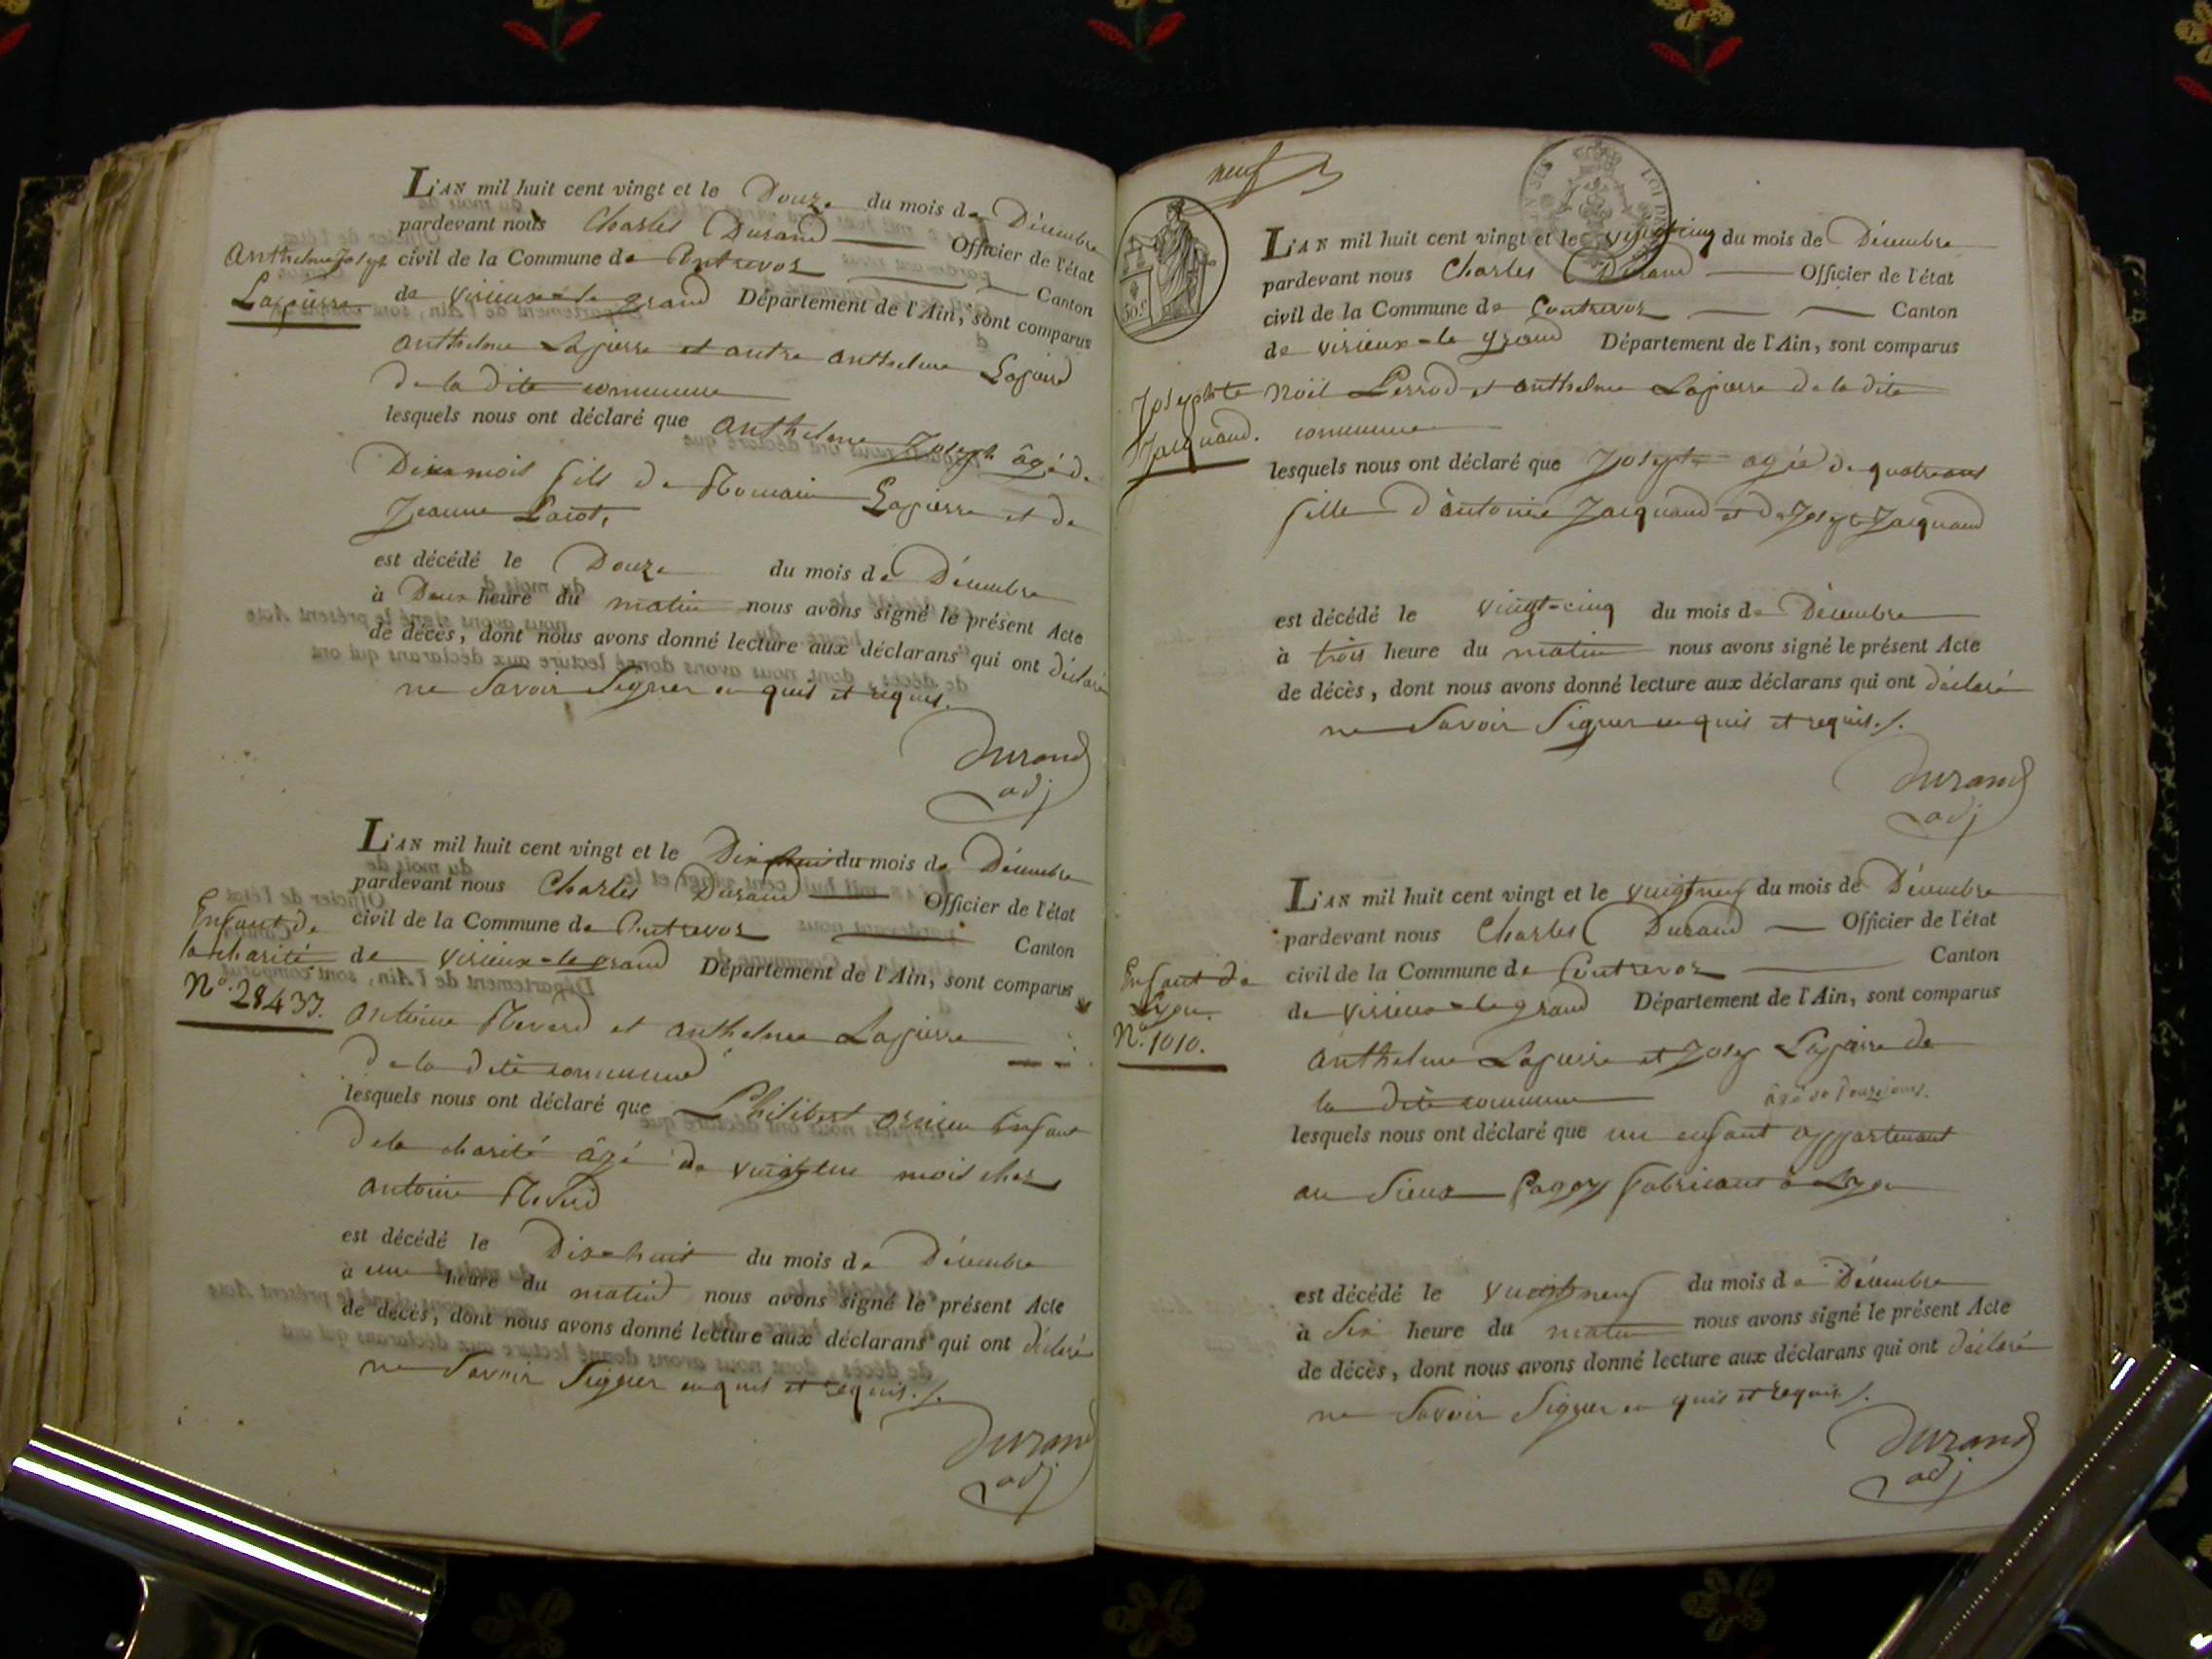 L'AN mil huit cent vingt et le Douze du mois de Décembre
pardevant nous Charles Durand Officier de l'état
civil de la Commune de Contrevoz Canton
de virieux-le grand Département de l'Ain, sont comparus
anthelme Lapierre et autre anthelme Lapierre
de la dite commune
lesquels nous ont déclaré que anthelme Joseph âgé de
Dix mois fils de Romain Lapierre et de
Jeanne
est décédé le Douze du mois de Décembre
à Deux heure du matin nous avons signé le présent Acte
de décès, dont nous avons donné lecture aux déclarans qui ont déclaré
ne Savoir Signer enquis et requis.
Durand
adj
Anthelme Joseph
Lapierre
L'AN mil huit cent vingt et le Dix huit du mois de Décembre
pardevant nous Charles Durand Officier de l'état
civil de la Commune de Contrevoz Canton
de virieux-le grand Département de l'Ain, sont comparus
antoine et anthelme Lapierre
de la dite commune
lesquels nous ont déclaré que Philibert Enfant
de la charité âgé de vingt un mois chez
antoine
est décédé le Dix-huit du mois de Décembre
à une heure du matin nous avons signé le présent Acte
de décès, dont nous avons donné lecture aux déclarans qui ont déclaré
ne Savoir Signer enquis et requis./.
Durand
adj
Enfant de
la charité
N°. 28437.
neuf
50 c
L'AN mil huit cent vingt et le vingt-cinq du mois de Décembre
pardevant nous Charles Durand Officier de l'état
civil de la Commune de Contrevoz Canton
de virieux-le grand Département de l'Ain, sont comparus
Noël Perrod et anthelme Lapierre de la dite
commune
lesquels nous ont déclaré que Josephte agée de quatre ans
fille d'antoine Jacquand et de Josephte Jacquand
est décédé le vingt-cinq du mois de Décembre
à trois heure du matin nous avons signé le présent Acte
de décès, dont nous avons donné lecture aux déclarans qui ont déclaré
ne Savoir Signer enquis et requis./.
Durand
adj
Josephte
Jacquand.
L'AN mil huit cent vingt et le vingt neuf du mois de Décembre
pardevant nous Charles Durand Officier de l'état
civil de la Commune de Contrevoz Canton
de virieux-le grand Département de l'Ain, sont comparus
anthelme Lapierre et Josep Lapierre de
la dite commune
âgé de Douze jours.
lesquels nous ont déclaré que un enfant appartenant
au Sieur fabricant à Lyon
est décédé le vingt neuf du mois de Décembre
à Six heure du matin nous avons signé le présent Acte
de décès, dont nous avons donné lecture aux déclarans qui ont déclaré
ne Savoir Signer enquis et requis./.
Durand
adj
Enfant de
Lyon.
N°. 1010.